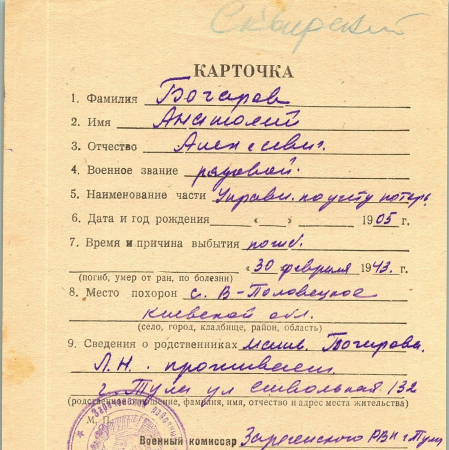 Сквирский
КАРТОЧКА
1. Фамилия Бочаров
2. Имя Анатолий
3. Отчество Алексеевич.
4. Военное звание рядовой.
5. Наименование части Управл. по учету потерь
6. Дата и год рождения « » 1905 г.
7. Время и причина выбытия погиб.
«30 февраля 1943 г.
(погиб, умер от ран, по болезни)
8. Место похорон с. В-Половецкое
Киевской обл.
(село, город, кладбище, район, область)
9. Сведения о родственниках Бочарова.
Л.Н. проживает
г. Тула ул 132
(родственные отношение, фамилия, имя, отчество и адрес места жительства)
М. П.
Военный комиссар Зареченского РВК г. Тулы